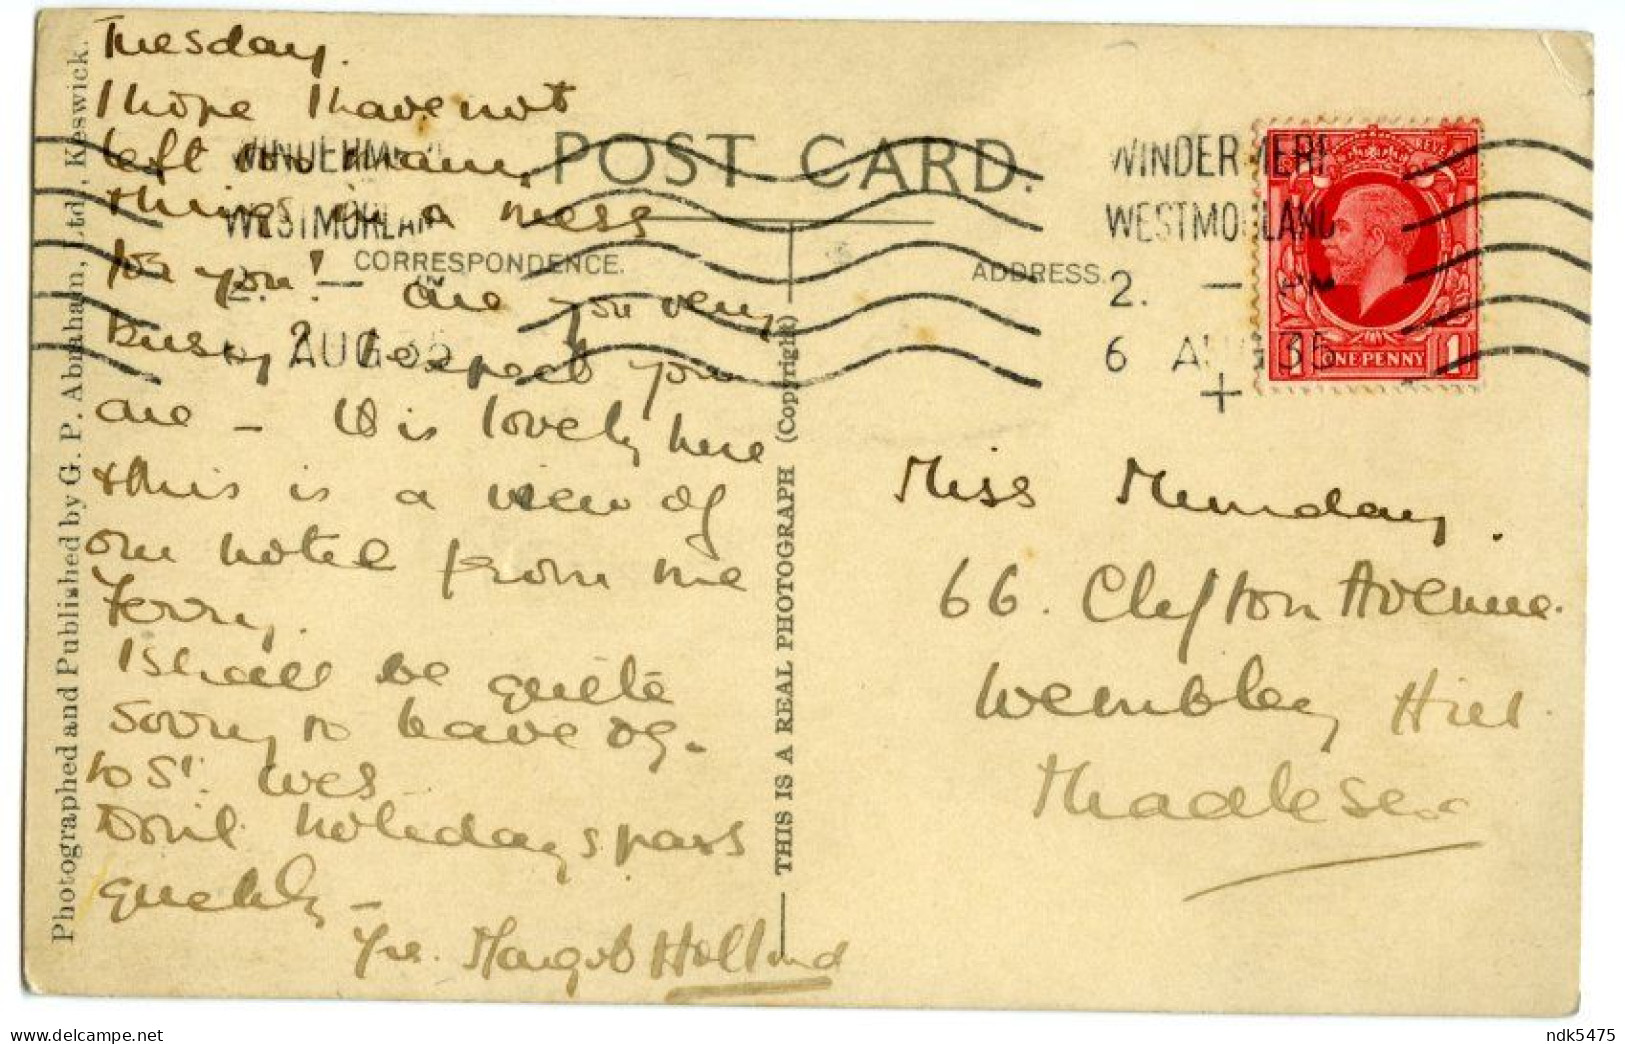 Tuesday.
I hope I have not
left too many
things in a mess
for you! — Are you very
busy, I expect you
are — It is lovely here
& this is a view of
our hotel from the
Ferry.
I shall be quite
sorry to leave
to St.
Don't holidays pass
quickly —
Yrs. Margot Holland
POST CARD.
CORRESPONDENCE.
ADDRESS.
WINDERMERE
WESTMORLAND
AUG 35
WINDERMERE
WESTMORLAND
2. — PM
6 AUG 35
+
ONE PENNY
1
Miss Munday.
66. Clifton Avenue.
Wembley Hill.
Middlesex
Photographed and Published by G. P. Abraham, Ltd., Keswick.
THIS IS A REAL PHOTOGRAPH (Copyright)
delcampe.net
ndk5475